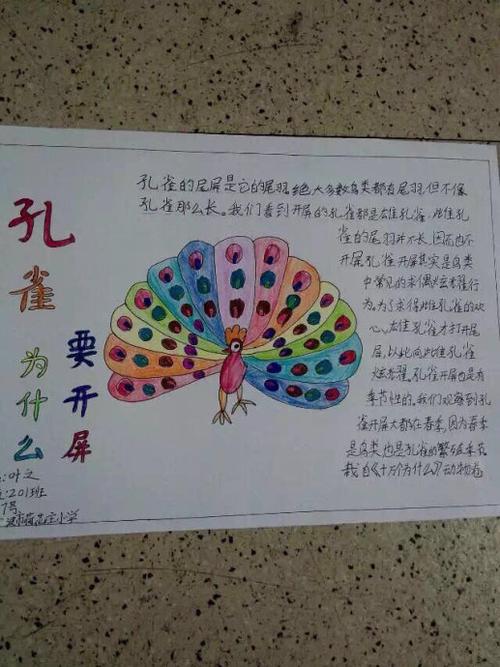 孔雀
为什么
要开屏
孔雀的尾屏是它的尾羽,绝大多数鸟类都有尾羽但不像
孔雀那么长。我们看到开屏的孔雀都是雄孔雀,雌孔
雀的尾羽并不长,因而也不
开屏孔雀开屏其实是鸟类
中常见的求偶炫耀行
为。为了求得雌孔雀的欢
心,雄孔雀才打开尾
屏,以此向雌孔雀
炫耀。孔雀开屏也是有
季节性的。我们观察到孔
雀开屏大都在春季,因为春季
是鸟类也是孔雀的繁殖季节。
栽自《十万个为什么》动物卷
:叶之
:201班
7号
小学